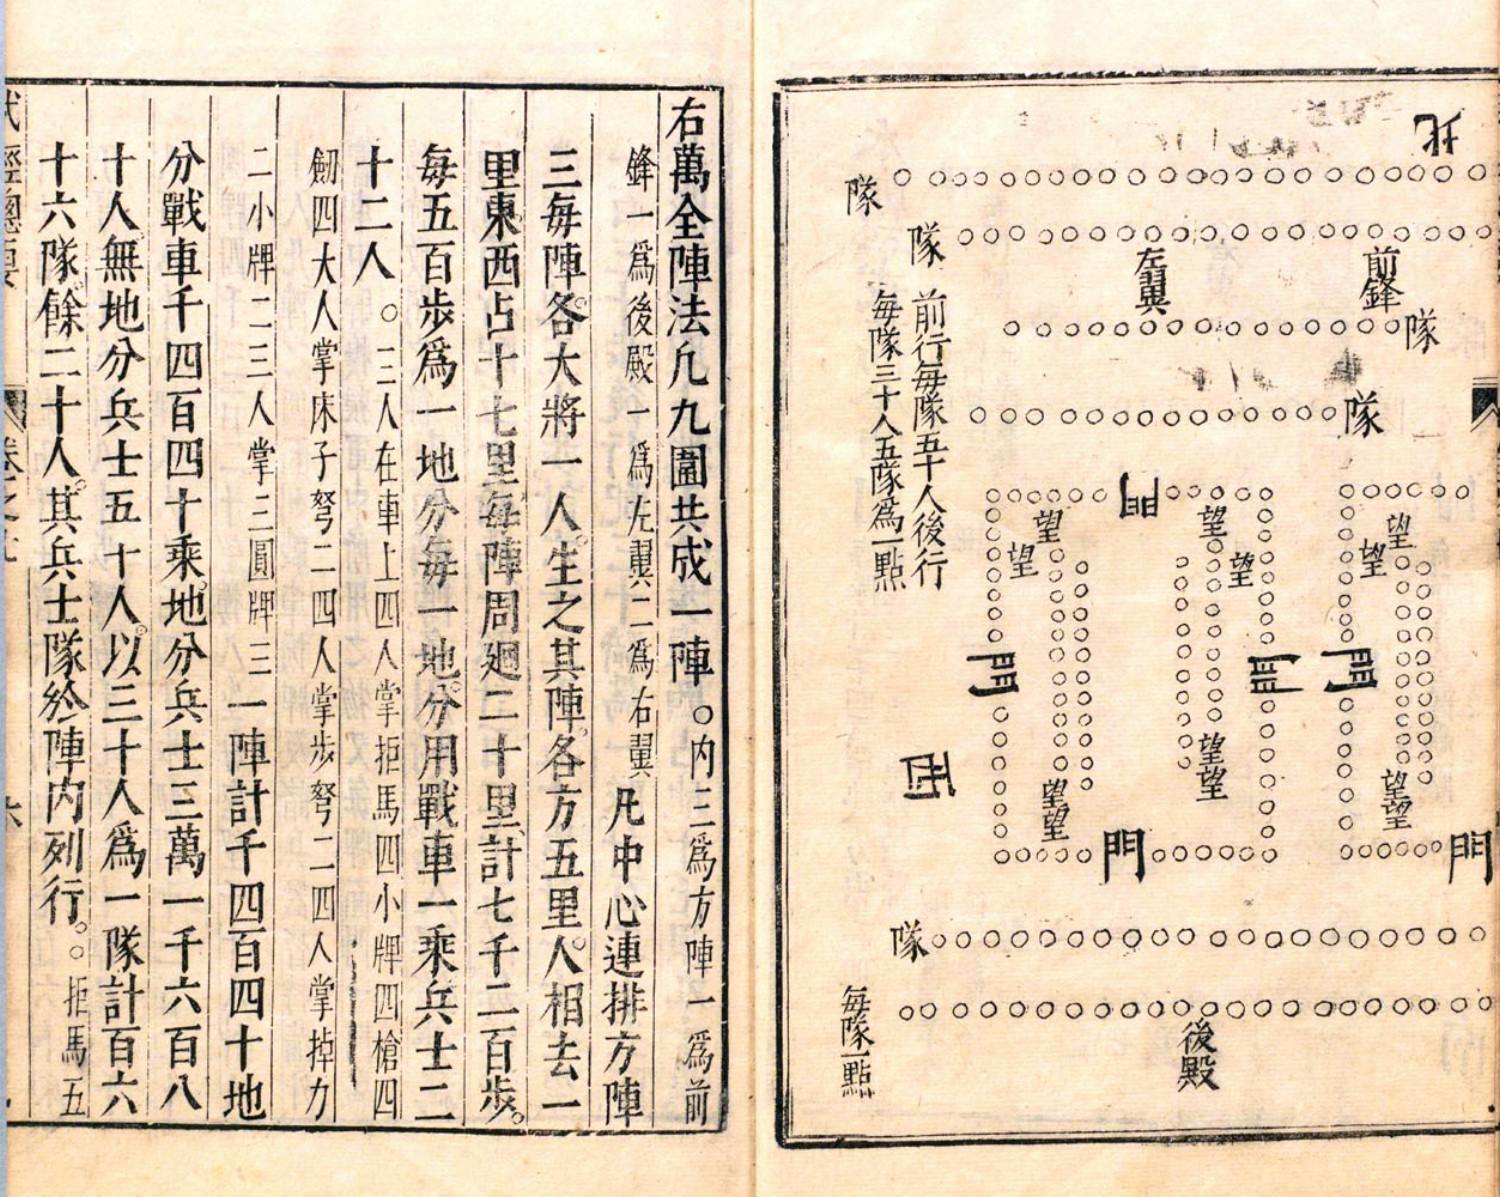 北
隊
隊
前鋒
左翼
隊
隊
前行每隊五十人後行
每隊三十人五隊為一點
門
望
望
望
望
望
望
門
門
門
望
望
望
望
望
望
西
門
門
隊
後殿
每隊一點
右萬全陣法凡九圍共成一陣○内三爲方陣一爲前
鋒一爲後殿一爲左翼二爲右翼凡中心連排方陣
三每陣各大將一人生之其陣各方五里人相去一
里東西占十七里每陣周廻二十里計七千二百步
每五百步爲一地分每一地分用戰車一乘兵士二
十二人○三人在車上四人掌拒馬四小牌四槍四
劒四大人掌床子弩二四人掌步弩二四人掌掉刀
二小牌二三人掌三圓牌三一陣計千四百四十地
分戰車千四百四十乘地分兵士三萬一千六百八
十人無地分兵士五十人以三十人爲一隊計百六
十六隊餘二十人其兵士隊於陣内列行○拒馬五
武經總要
卷之七
六